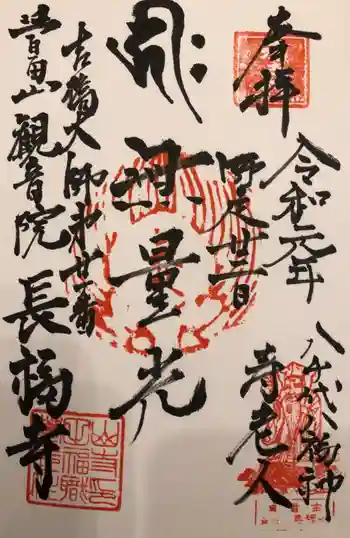 奉拝
令和元年
四月廿二日
八千代八福神
寿老人
無量光
吉橋大師
番
豊山観音院
長福寺